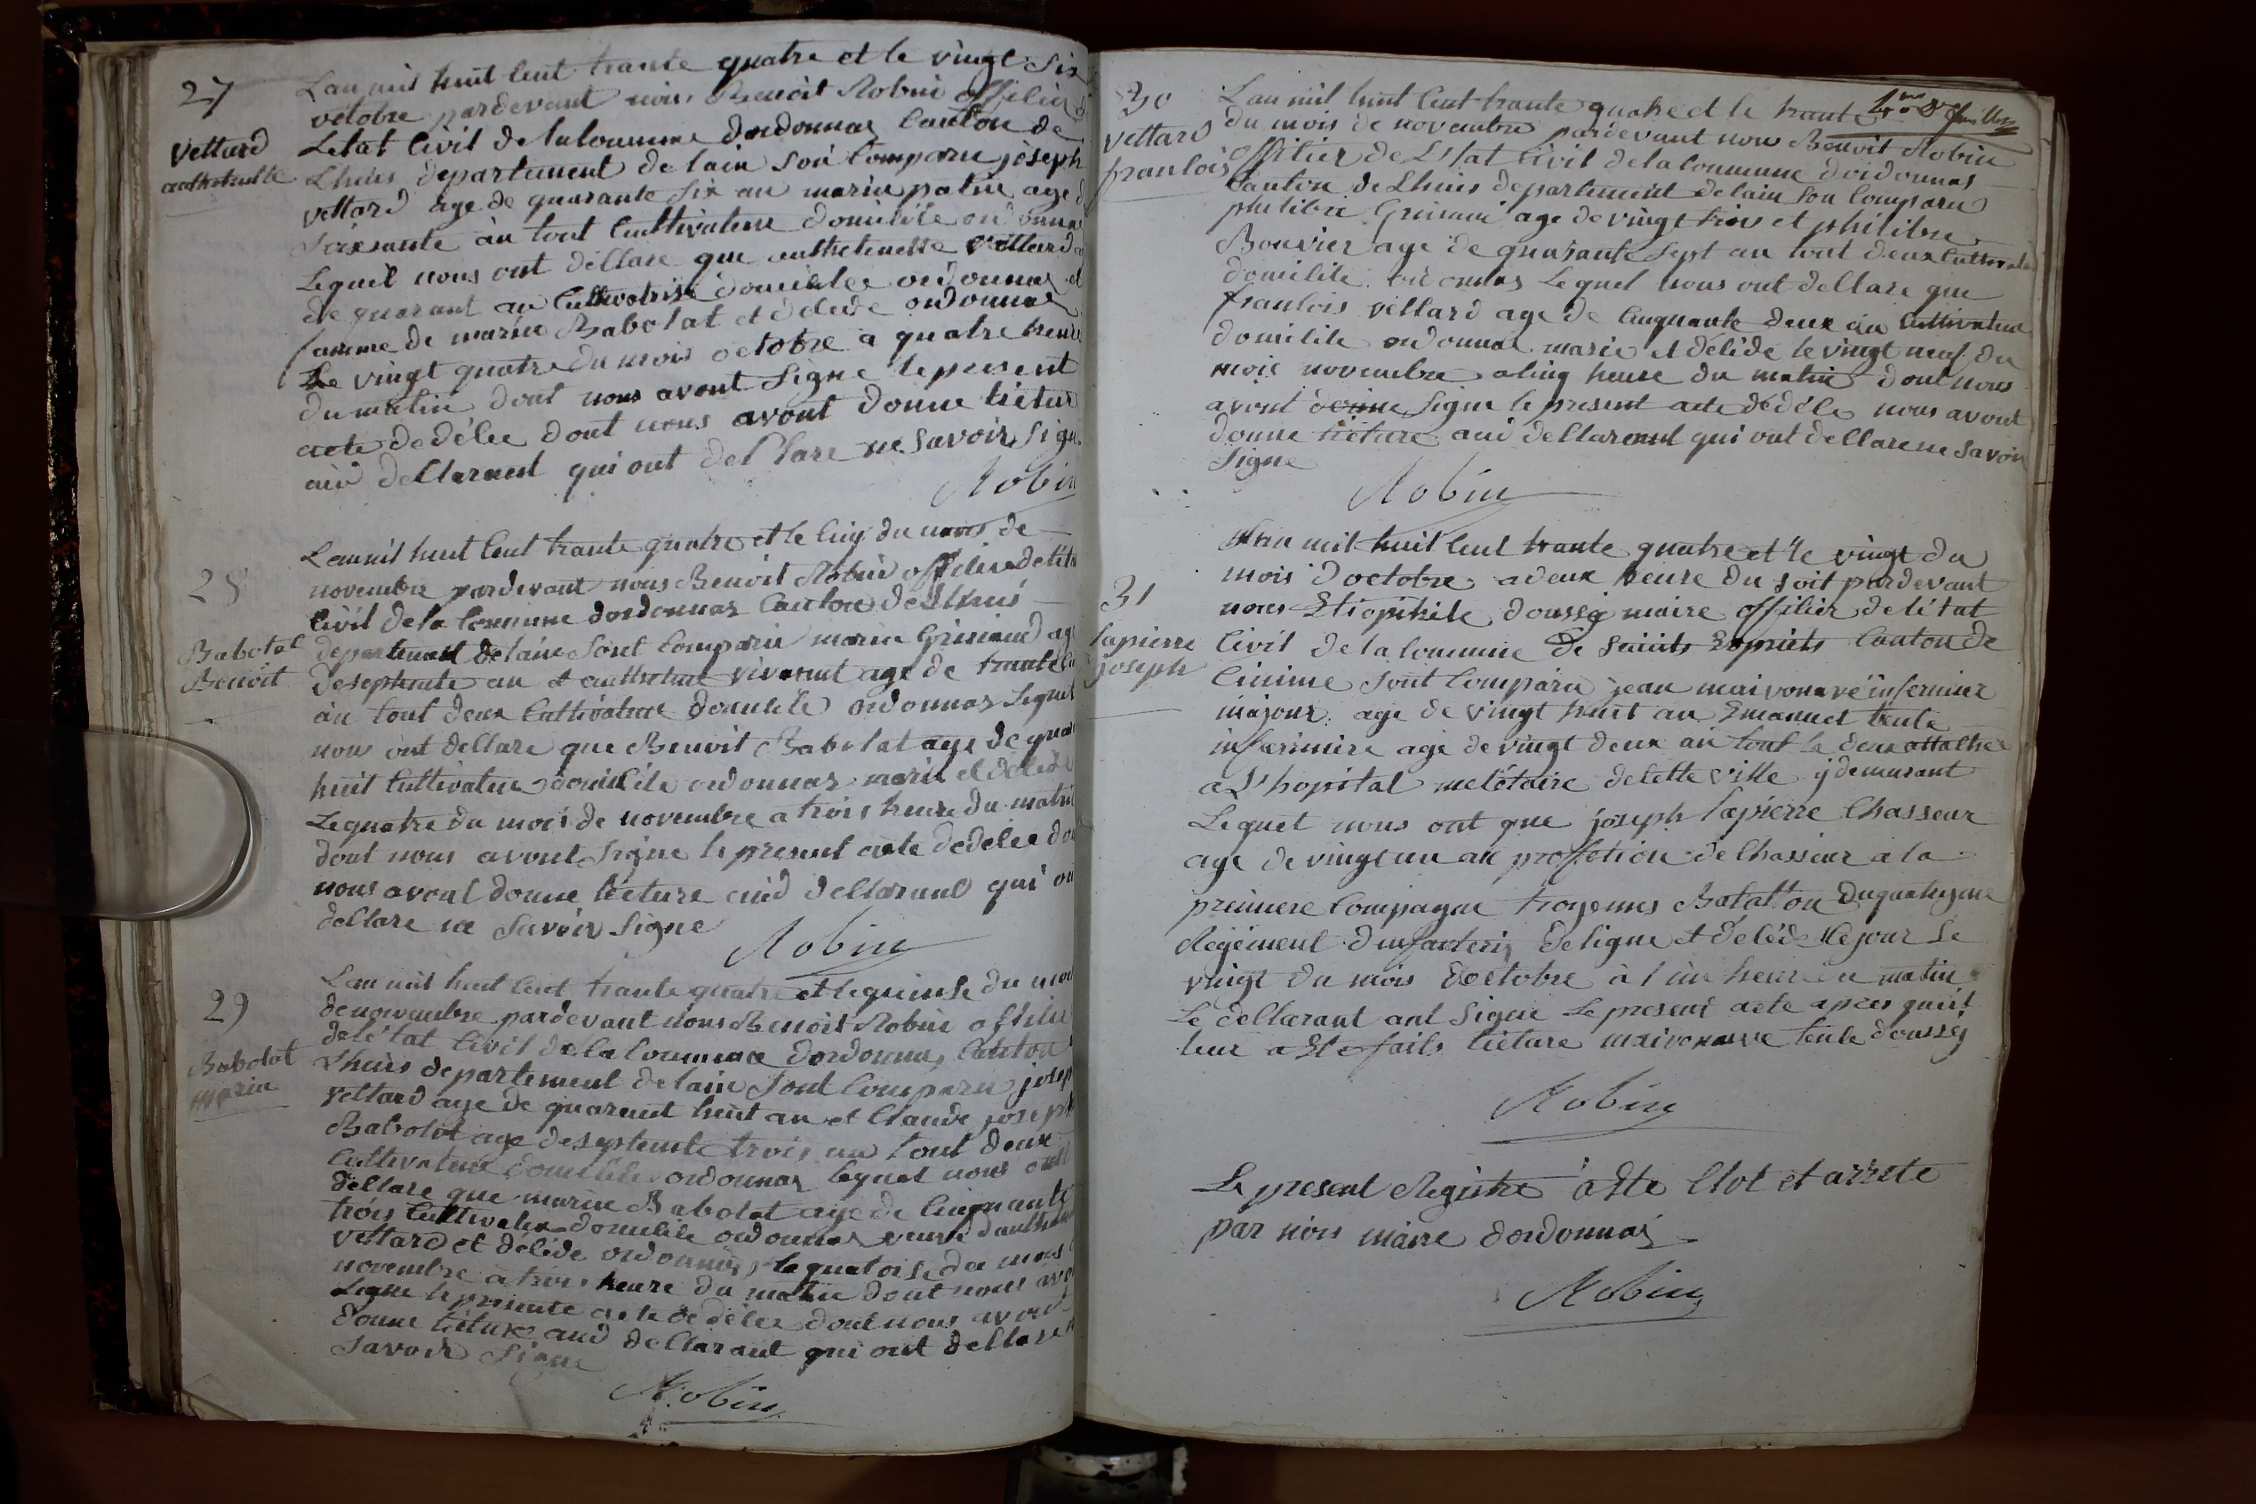 27
Vettard
anthelmette
Lan mil huit Cent trante quatre et le vingt Six
octobre pardevant nous Benoit Robin offilier d
Letat Civil de la Commune dordonnas Canton de
Lhuis departement de lain Son Comparu joseph
vettard age de quarante Six an marin patin age d
Soixante an tout Cultivateur domilile ordonnas
Lequel nous ont dellare que anthelmette Vettard a
de quarant an Cultivatrise domilile ordonnas et
famme de marin Babolat et delede ordonnas
Le vingt quatre du mois octobre a quatre heure
du matin dont nous avont Signe le present
acte dedélee dont nous avont donne lieture
aud dellarnent qui ont dellare ne Savoir Signe
Robin
28
Babolat
Benoit
Lan mil huit Cent trante quatre et le Cinq du mois de
novembre pardevant nous Benoit Robin offilier de léta
Civil de la Commune dordonnas Canton de Lhuis
departement delain Sont Comparu marin Grisiaud age
deseptente an et anthelme vivarent age de trante
an tout deux Cultivateur domilile ordonnas Lequel
nous ont dellare que Benoit Babolat age de quara
huit Cultivateur domilile ordonnas marie et déléde
Lequatre du mois de novembre a trois heure du matin
dont nous avont Signe le present acte dedélee don
nous avont donne lieture aud dellarant qui on
dellare ne Savoir Signe
Robin
29
Babolat
marin
Lan mil huit Cent trante quatre et lequinse du moi
denovembre pardevant nous Benoit Robin offilier
delétat Civil de la Commune dordonnas Canton
Lhuis departement delain Sont Comparu josep
Vettard age de quarent huit an et Claude joseph
Babolat age deseptente trois an tout deux
Cultivateur domilile ordonnas lequel nous ont
dellare que marin Babolat age de Cinquante
trois Cultivateur domilile ordonnas veuve danthelme
vettard et déléde ordonnas le quatorse du mois
novembre a trois heure du matin dont nous avo
Signe le presente acte dedélee dont nous avont
donne lieture aud dellarant qui ont dellare n
Savoir Signe
Robin
30
Vettard
franlois
Lan mil huit Cent trante quatre et le trante
du mois de novembre pardevant nous Benoit Robin
offilier de Létat Civil de la Commune dordonnas
Canton de Lhuis departement delain Son Comparu
philibre Grisiaud age de vingt trois et philibre
Bouvier age de quarante Sept an tout deux Cultivate
domilile ordonnas Lequel nous ont dellare que
franlois vettard age de Cinquante deux an Cultivateur
domilile ordonnas marie et délédé le vingt neuf du
mois novembre a Cinq heure du matin dont nous
avont Signe le present acte dédéle nous avont
donne lieture aud dellarent qui ont dellare ne Savoir
Signe
Robin
31
Lapierre
joseph
mil huit Cent trante quatre et le vingt du
mois doctobre a deux heure du soit pardevant
nous Etiophile doussé maire offilier delétat
Civil de la Commune De Saints Esprits Canton de
Cinime Sont Comparu jean maivonave infermier
majour age de vingt huit an Emanuel tente
infermiere age de vingt deux an tout le deux attathe
a L'hopital melétaire de Cette ville y demurant
Lequel nous ont que joseph Lapierre Chasseur
age de vingt un an proffetion de Chasseur a la
primiere Compagne troyemes Batallon du quatrzyeme
Régement d'infanterie de ligne et délédé le jour Le
vingt du mois doctobre à l'un heure du matin
Le dellarant ant Signe Le present acte apres quil
leur a Ete fails lieture maivonave tente doussé
Robin
Le present Registre a Ete Clot et arrete
par nous maire dordonnas
Robin